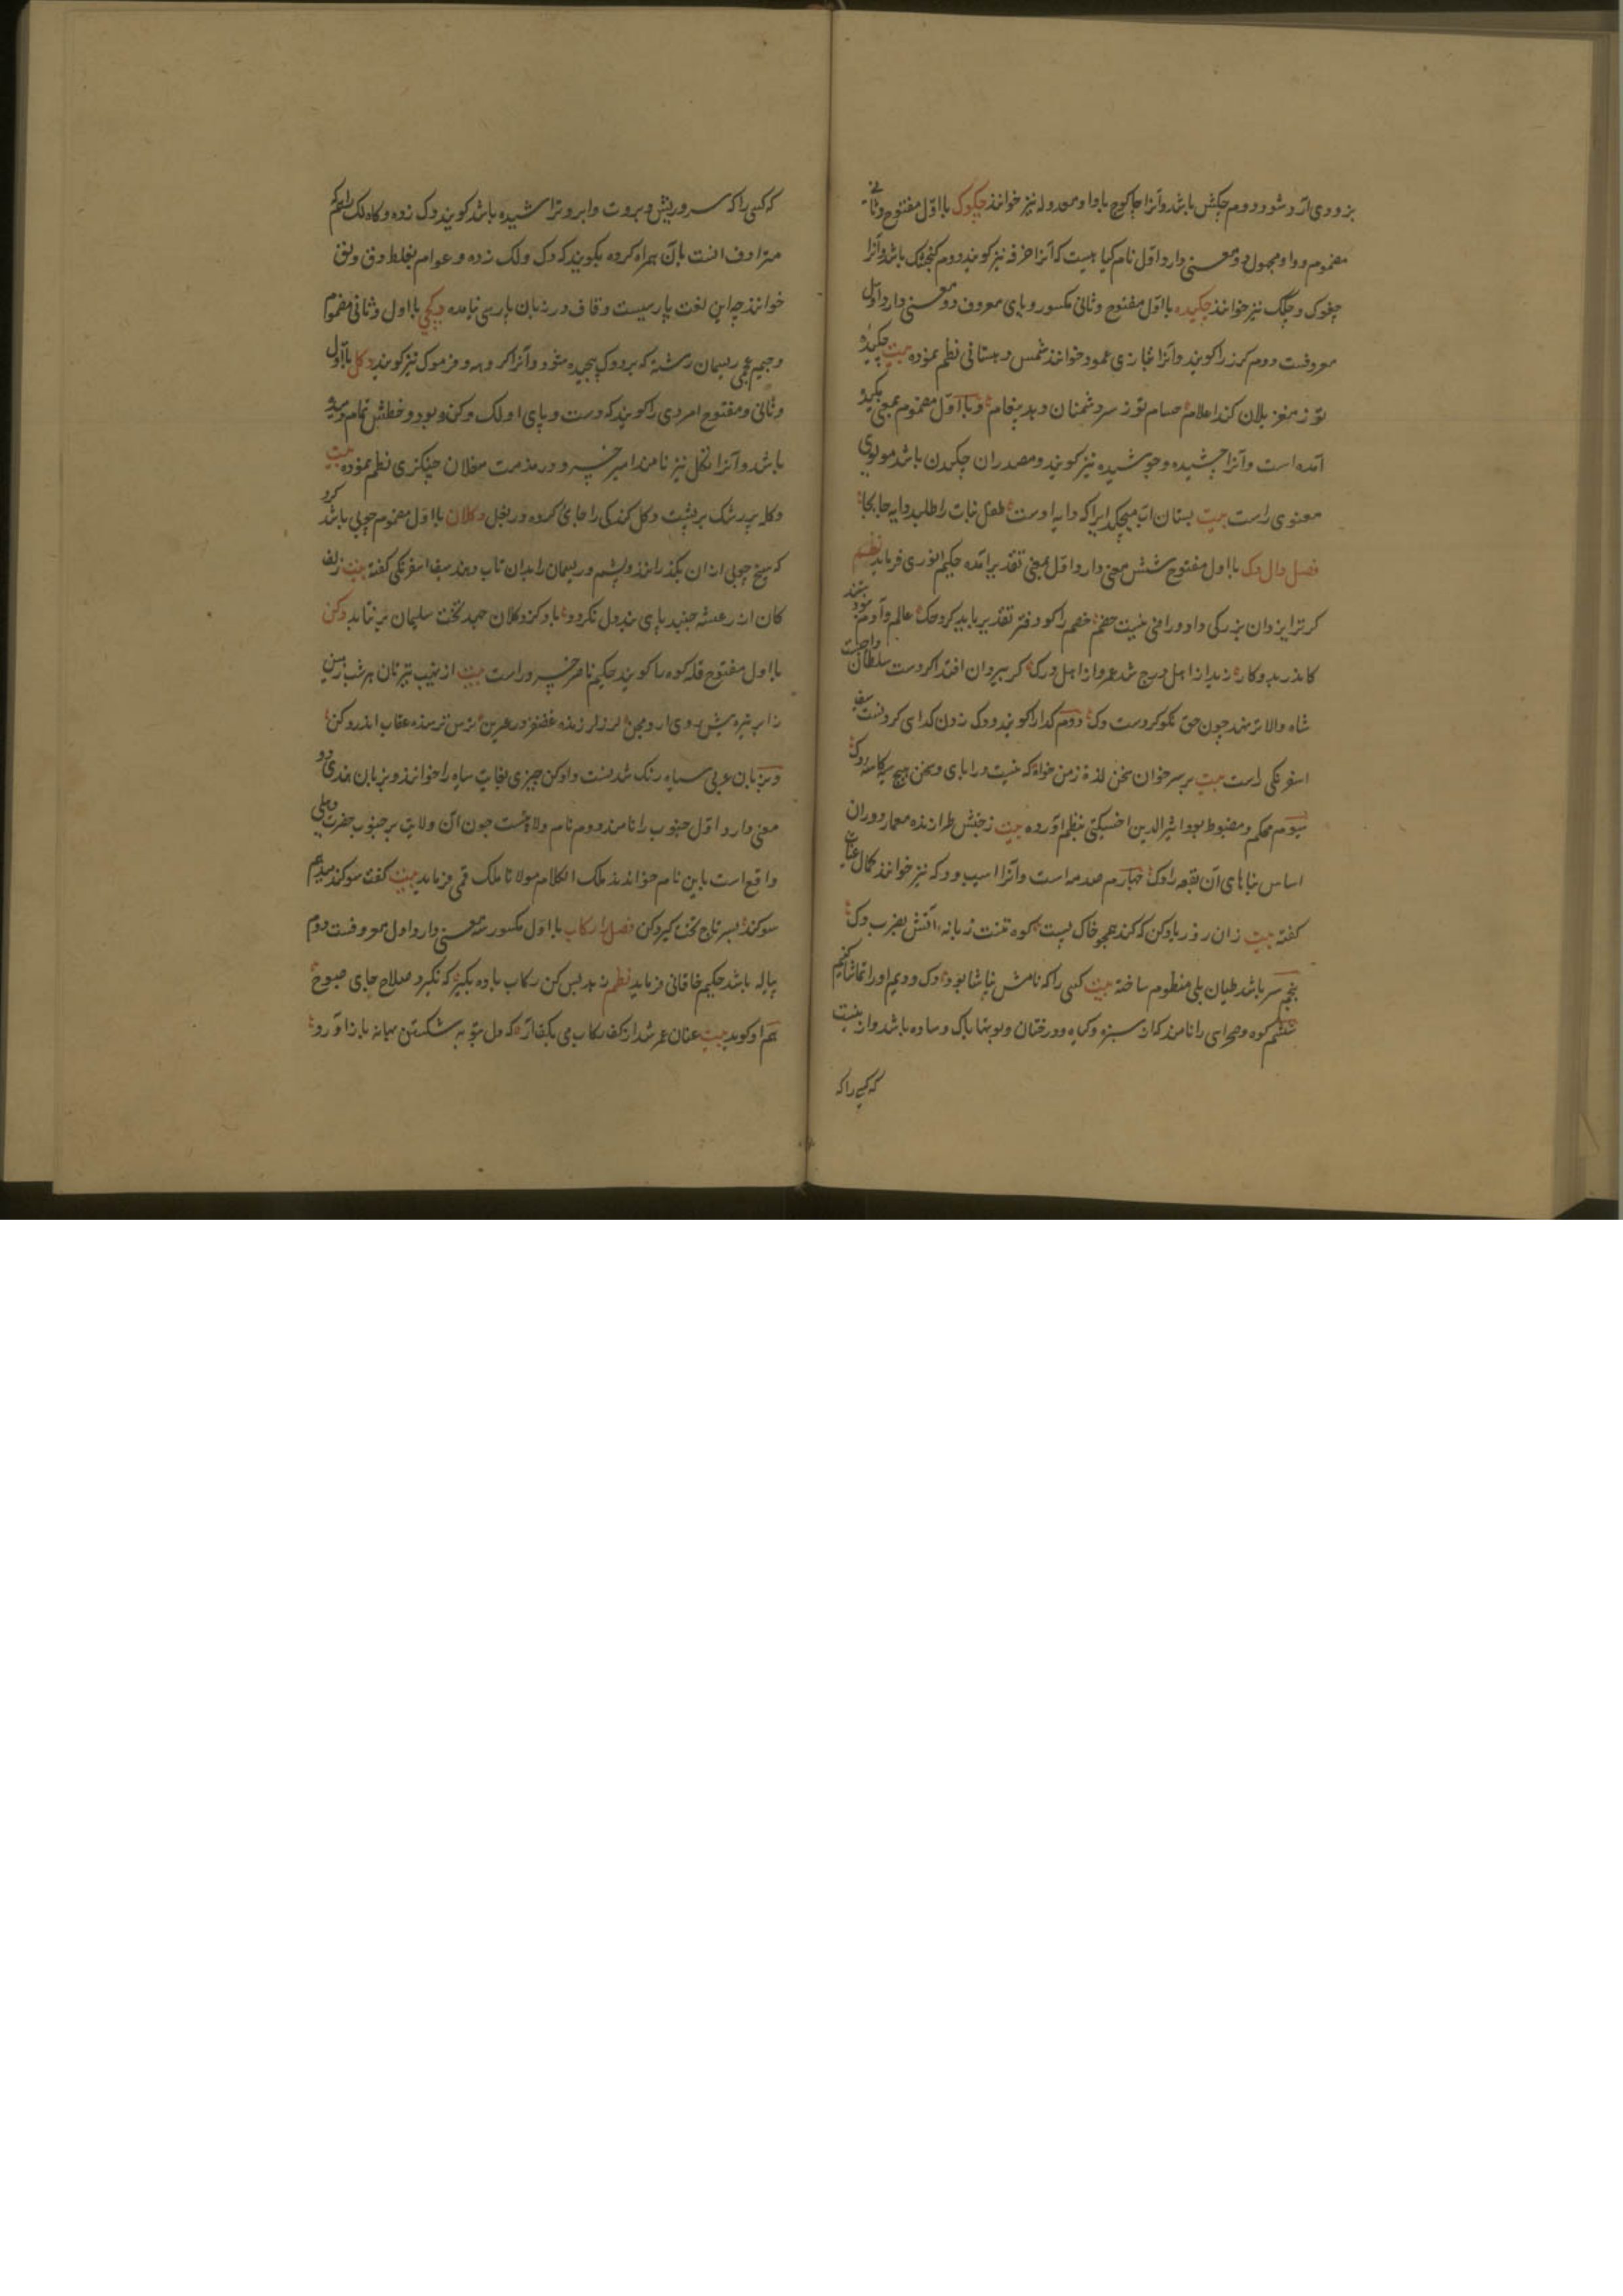 بزودی آرد شود دوم چکش باشد و آنرا چاکوچ با واو معدوله نیز خوانند چکوک با اول مفتوح و ثانی
مضموم و واو مجهول دو معنی دارد اول نام کیاهیست که آنرا خرفه نیز کویند دوم کنجشک باشد و آنرا
چغوک و چلک نیز خوانند چکیده با اول مفتوح و ثانی مکسور و یای معروف دو معنی دارد اول
معروفست دوم کرز را کویند و آنرا بتازی عمود خوانند شمس دهستانی نظم نموده بیت چکیده
تو ز مغز یلان کند اعلام حسام تو ز سر دشمنان دهد پیغام و با اول مضموم بمعنی مکیده
آمده است و آنرا چشیده و جوشیده نیز کویند و مصدر آن چکیدن باشد مولوی
معنوی راست بیت بستان آب میچکد ایرا که دایه اوست طفل نبات را طلبد دایه جابجا
فصل دال دک با اول مفتوح شش معنی دارد اول بمعنی تقدیر آمده حکیم انوری فرماید نظم
کر ترا یزدان بزرکی داد و راضی نیست خصم خصم را کو دفتر تقدیر باید کرد حک عالم و آدم نبودستند
کاندر بدو کار زید از اهل درج شد عمرو از اهل درک کر بیرون افتد اکر دست سلطان
شاه والا ترنهد چون حق نکو کردست دک دوم کدا را کویند و دک زدن کدای کردنست سیف
اسفرنکی راست بیت بر سر خوان سخن لذة ز من خواه که نیست در ابای سخن هیچ سیه کاسه دک
سیوم محکم و مضبوط بود اثیر الدین اخسیکتی بنظم آورده بیت ز جنبش طرازنده معمار دوران
اساس بناهای آن بقعه را دک چهارم صدمه است و آنرا اسیب و دکه نیز خوانند کمال غیاث
کفته بیت زان روز یاد کن که کند همچو خاک پست کوه تنت زبانه آتش بضرب دک
پنجم سر باشد طیان بلی منظوم ساخته بیت کسی را که نامش بپاشا بود دک و دیم او را تماشا کنیم
ششم کوه و صحرای را نامند که از سبزه و کیاه و درختان و بوتها پاک و ساده باشد و از ینست
که کسی را که
که کسی را که سر و ریش و بروت و ابرو تراشیده باشد کویند دک زده و کاه لک را که
مترادف آنست با آن همراه کرده بکویند که دک و لک زده و عوام بغلط دق و لق
خوانند چه این لغت پارسیست و قاف در زبان پارسی نیامده دکجی با اول و ثانی مضموم
و جیم عجمی ریسمان رشته که بر دوک پیچیده شود و آنرا کروهه و فرموک نیز کویند دکل با اول
و ثانی مفتوح امردی را کویند که دست و پای او لک و کنده بود و خطش تمام دمیده
باشد و آنرا نکل نیز نامند امیر خسرو در مذمت مغلان چنکزی نظم نموده بیت
دکله پر رشک بر پشت دکل کندکی را جای کرده در بغل دکلان با اول مضموم چوبی باشد
که سیخ چوبی از آن بکذرانند و پشم و ریسمان را بدان تاب دهند سیف اسفرنکی کفته بیت زلف
کان از رعشه جنبد پای بند دل نکردد باد کز دکلان جهد تخت سلیمان برنتابد دکن
با اول مفتوح قله کوه را کویند حکیم ناصر خسرو راست بیت از نهیب تیر تان هر شب زمین
را بر تیره پیش روی آرد مجن لرز لرزنده غضنفر در عرین ترس ترسنده عقاب اندر وکن
و بزبان عربی سیاه رنک شدنست و ادکن چیزی بغایت سیاه را خوانند و بزبان هندی دو
معنی دارد اول جنوب را نامند دوم نام ولایتست چون آن ولایت بر جنوب حضرت دهلی
واقع است باین نام خوانند ملک الکلام مولانا ملک قمی فرماید بیت کفت سوکند میدهم
سوکند بسر تاج تخت کیر دکن فصل را رکاب با اول مکسور سه معنی دارد اول معروفست دوم
پیاله باشد حکیم خاقانی فرماید نظم زهد بس کن رکاب باده بکیر که نکیرد صلاح جای صبوح
هم او کوید بیت عنان عمر شد از کف رکاب می بکف آر که دل بتوبه شکستن بهانه باز آورد